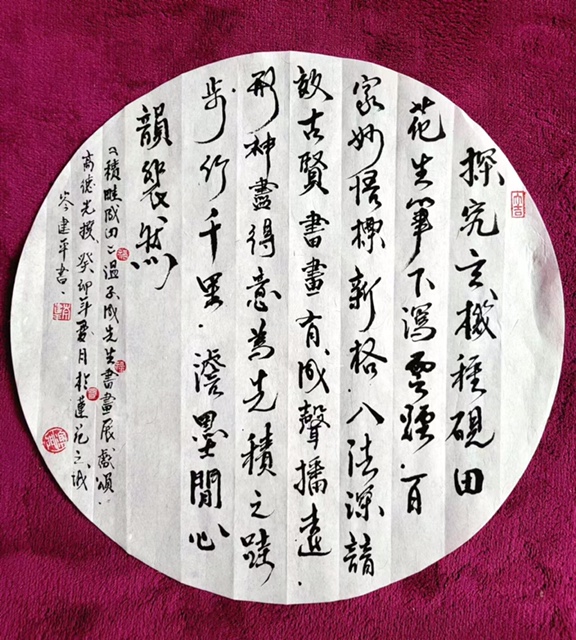 大吉
探究玄機種硯田
花生筆下瀉雲煙.百
家妙悟標新格八法深諳
效古賢書畫有成聲播遠.
形神盡得意為先積之跬
步行千里.澹墨閒心
韻然
《積畦成田》温子成先生書畫展獻頌.
高德光撰癸卯年夏月於蓮花之城
岑建平書.